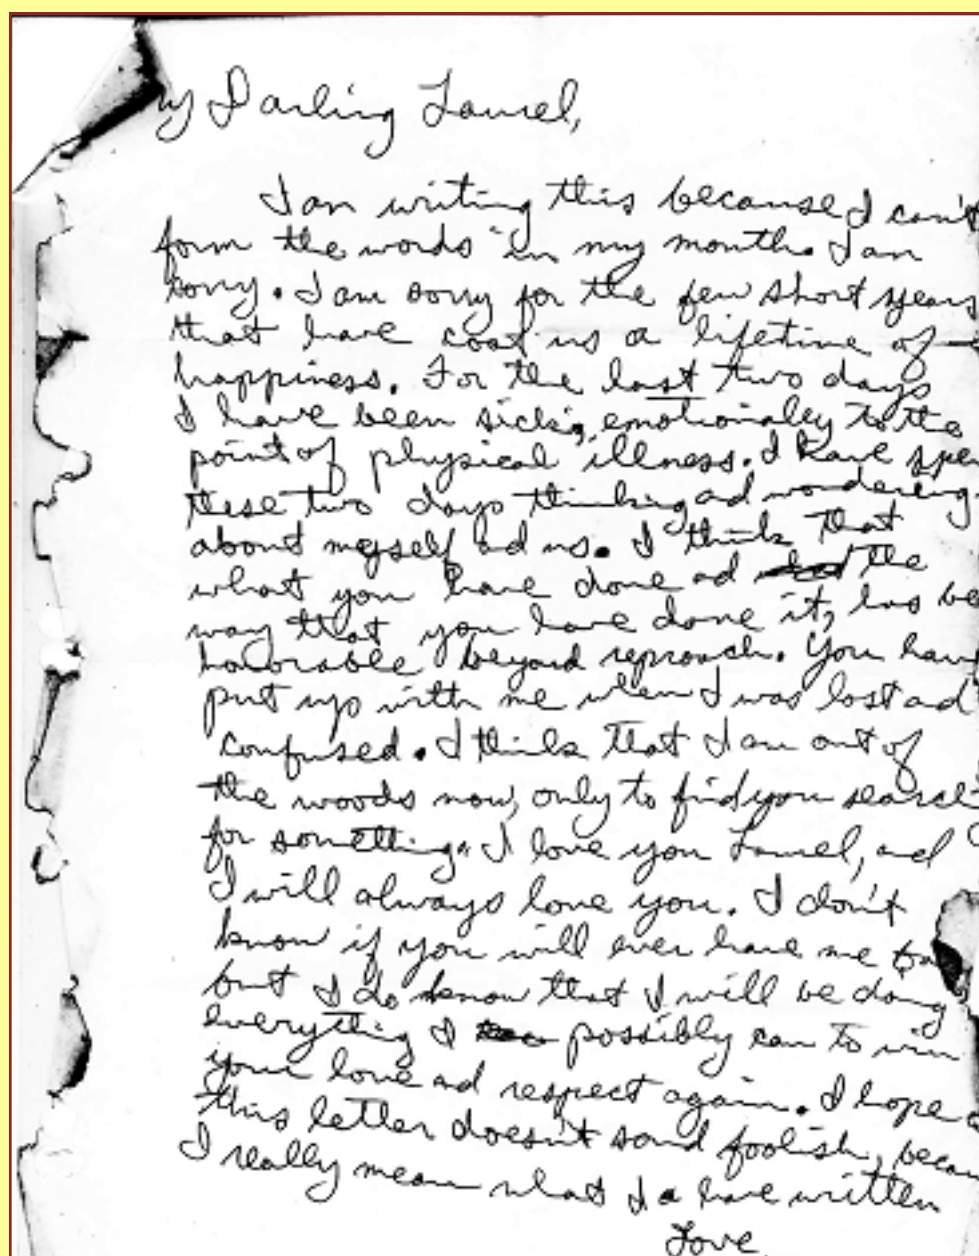 y Darling Laurel,
I am writing this because I can't
form the words in my mouth. I am
sorry. I am sorry for the few short years
that have cost us a lifetime of
happiness. For the last two days
I have been sick, emotionally to the
point of physical illness. I have spe
these two days thinking ad wondering
about myself ad us. I think that
what you have done ad the
way that you have done it, has be
honorable beyond reproach. You hav
put up with me when I was lost ad
confused. I think that I am out of
the woods now, only to find you search
for something. I love you Laurel, and
I will always love you. I don't
know if you will ever have me ba
but I do know that I will be doing
everything I possibly can to win
your love ad respect again. I hope
this letter doesn't sound foolish, becau
I really mean what I have written
Love